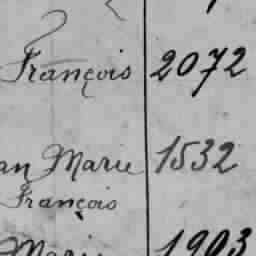 François 2072
an Marie 1532
François
Marie 1903